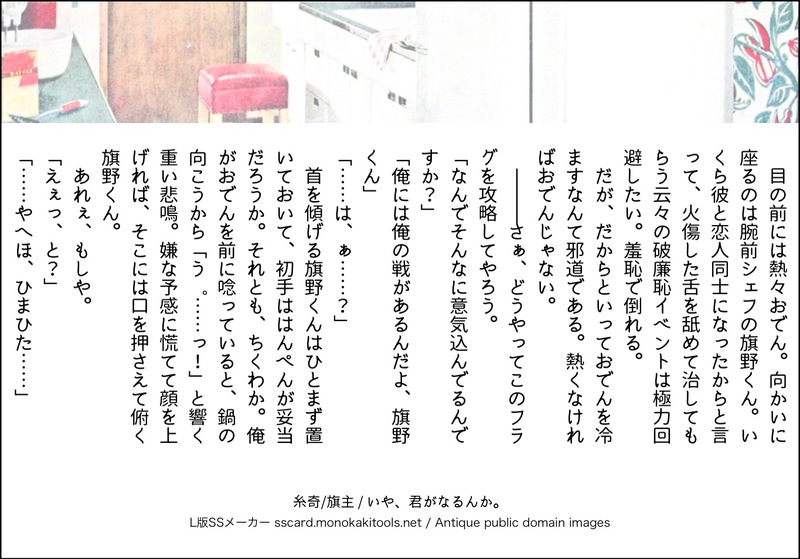 目の前には熱々おでん。向かいに
座るのは腕前シェフの旗野くん。い
くら彼と恋人同士になったからと言
って、火傷した舌を舐めて治しても
らう云々の破廉恥イベントは極力回
避したい。羞恥で倒れる。
だが、だからといっておでんを冷
ますなんて邪道である。熱くなけれ
ばおでんじゃない。
――さぁ、どうやってこのフラ
グを攻略してやろう。
「なんでそんなに意気込んでるんで
すか?」
「俺には俺の戦があるんだよ、旗野
くん」
「……は、ぁ……?」
首を傾げる旗野くんはひとまず置
いておいて、初手ははんぺんが妥当
だろうか。それとも、ちくわか。俺
がおでんを前に唸っていると、鍋の
向こうから「う゜……っ!」と響く
重い悲鳴。嫌な予感に慌てて顔を上
げれば、そこには口を押さえて俯く
旗野くん。
あれぇ、もしや。
「えぇっ、と?」
「……やへほ、ひまひた……」
糸奇/旗主 / いや、君がなるんか。
L版SSメーカー sscard.monokakitools.net / Antique public domain images